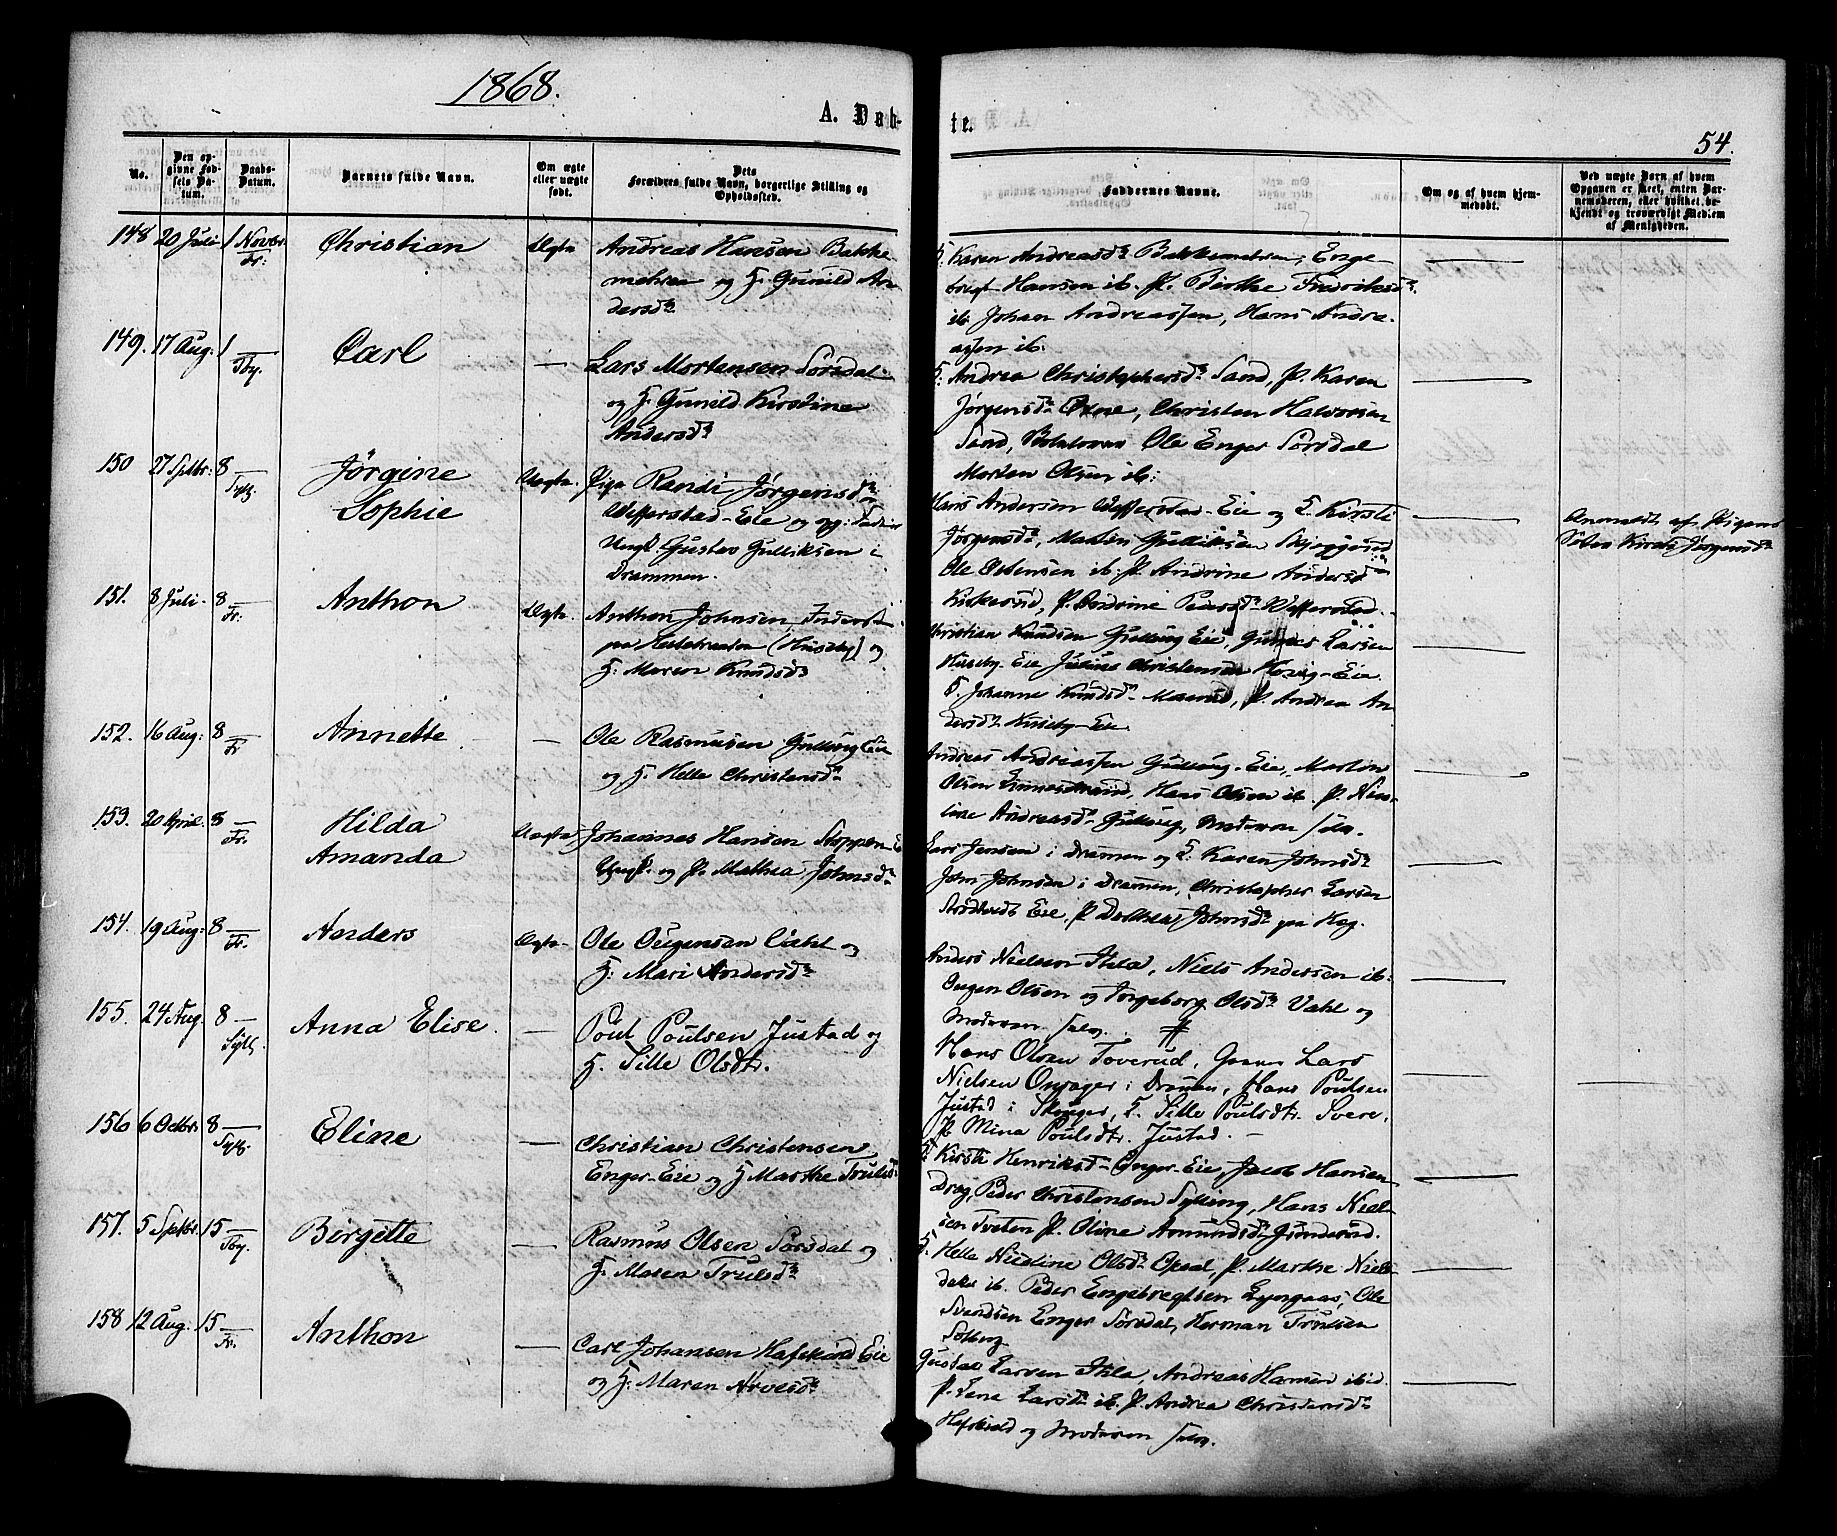 1868.
A. Døb-
te.
54.
No.
Den op-
givne Fød-
sels Da-
tum.
Daabs-
Datum.
Barnets fulde Navn.
Om ægte
eller uægte
født.
Dets
Forældres fulde Navn, borgerlige Stilling og
Opholdssted.
Faddernes Navne.
Om og af hvem hjem-
medøbt.
Ved uægte Barn af hvem
Opgaven er skeet, enten Bar-
nemoderen, eller hvilket be-
kjendt og troværdigt Medlem
af Menigheden.
148 20 Juli 1 Novbr. Fr: Christian Ægte
Andreas Hansen Bakke-
mehren og H. Gunild An-
dersdtr
H. Karen Andreasdtr Bakkemehren, Enge-
brigt Hansen ib. P. Birthe Fredriksdtr
ib. Johan Andreassen, Hans Andre-
assen ib.
149. 17 Aug: 1 — Tby. Carl —
Lars Mortensen Sørsdal
og H. Gunild Kirstine
Andersdtr
H: Andrea Christophersdtr Sand, P. Karen
Jørgensdtr Øxne, Christen Halvorsen
Sand, Ole Enger Sørsdal
Morten Olsen ib:
150 27 Septbr. 8 — Jørgine
Sophie Uægte.
Pige Randi Jørgensdtr
Vefferstad-Eie og opg: Fader
Ungk. Gustav Gulliksen i
Drammen.
Hans Andersen Vefferstad-Eie og H. Kirsti
Jørgensdtr, Martin Gulliksen
Ole Ostensen ib. P. Andrine Andersdtr
Kiskerud, P. Andrine Pedersdtr Vefferstad.
Anmeldt af Pigens
Søster Kirsti Jørgensdtr
151. 8 Juli 8 — Fr: Anthon Ægte.
Anthon Johnsen Inderst
paa (Huseby) og
H: Maren Knudsdtr
Christian Knudsen Gullaug Eie, Gunnar Larsen
Huseby-Eie Julius Christensen Eie
H. Johanne Knudsdtr P. Andrea An-
dersdtr Huseby-Eie
152. 16 Aug: 8 — Fr Annette —
Ole Rasmusen Gullaug Eie
og H. Helle Christensdtr
Andreas Andreassen Gullaug-Eie, Martin
Olsen Hans Olsen ib. P. Nico-
line Andreasdtr Gullaug, Moderen selv.
153. 20 April. 8 — Fr. Hilda
Amanda Uægte
Johannes Hansen Stoppen E
Ungk. og P. Mathea Johnsdtr
Lars Jensen i Drammen og H. Karen Johnsdtr
John Johnsen i Drammen, Christopher Larsen
Eie, P. Dorthea Johnsdtr paa Hag.
154. 19 Aug: 8 — Fr. Anders Ægte
Ole Ougensen Vahl og
H. Mari Andersdtr
Anders Nielsen Hila, Niels Andersen ib.
Ougen Olsen og Torgeborg Olsdtr Vahl og
Moderen selv. #
155. 24 Aug. 8 — Syll. Anna Elise. —
Poul Poulsen Justad og
H. Sille Olsdtr.
Hans Olsen Toverud, Lars
Nielsen Onsager i Dramen, Hans Poulsen
Justad i Skouger, H. Sille Poulsdtr. Svere,
P. Mina Poulsdtr. Justad. —
156 6 Octbr 8 — Eline —
Christian Christensen
Enger-Eie og H Marthe Trulsdtr
H. Kirsti Henriksdtr Enger-Eie, Jacob Hansen
Drag, Peder Christensen Sylling, Hans Niel-
sen Tveten P. Oline Amundsdtr
157. 5 Septbr. 15 — Tby. Birgitte —
Rasmus Olsen Sørsdal og
H. Maren Trulsdtr
H. Helle Nicoline Olsdtr Opsal, P. Marthe Niels-
datr ib. Peder Engebregtsen Lyngaas, Ole
Svendsen Enger Sørsdal, Herman Trulsen
Solberg
158 12 Aug. 15 — Fr. Anthon —
Carl Johansen Hafskold Eie
og H. Maren Arvesdtr
Gustav Larsen Hila, Andreas Hansen ibid.
P. Lena Larsdtr ib. P. Andrea Christensdtr
Hafskold og Moderen selv.